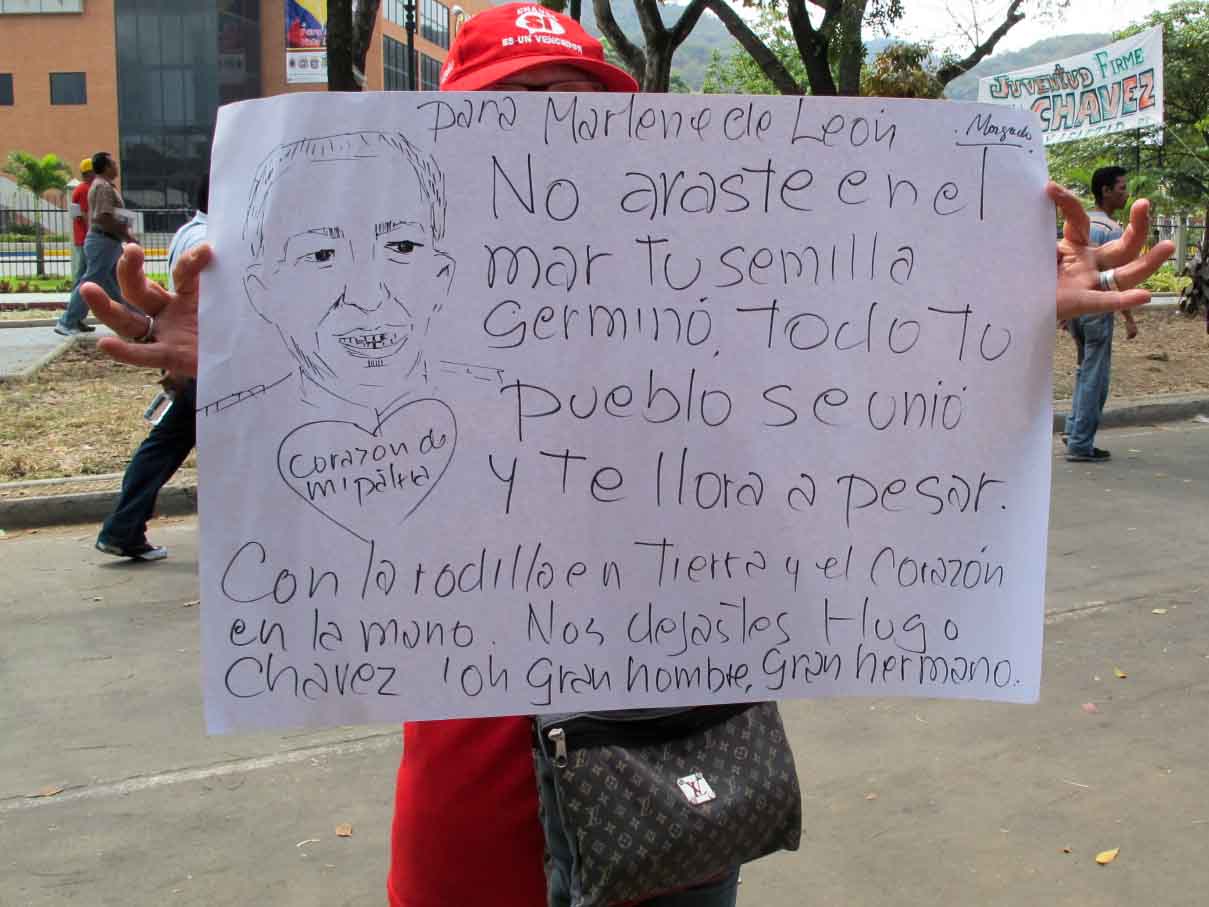 CHÁVEZ
ES UN VENCEDOR
JUVENTUD FIRME
CHAVEZ
para Marlene de León
Morgado
No araste en el
mar tu semilla
Germinó, todo tu
pueblo se unió
y te llora a pesar.
Corazón de
mi pátria
Con la rodilla en tierra y el corazón
en la mano. Nos dejastes Hugo
Chavez ¡oh gran hombre, Gran hermano.
LV